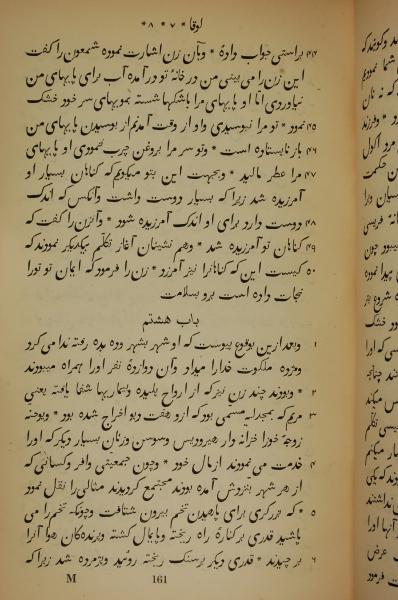 لوقا * ۷ * ۸ *
۴۴ براستی جواب دادهٔ * وبآن زن اشارت نموده شمعون را گفت
این زن را می بینی من در خانهٔ تو در آمدم آب برای پایهای من
نیاوردی امّا او پایهای مرا باشکها شسته بمویهای سر خود خشک
۴۵ نمود * تو مرا نبوسیدی واو از وقت آمدنم از بوسیدن پایهای من
۴۶ باز نایستاده است * وتو سر مرا بروغن چرب ننمودی او پایهای
۴۷ مرا عطر مالید * وبجهت این بتو میگویم که گناهان بسیار او
آمرزیده شد زیرا که بسیار دوست داشت وآنکس که اندک
۴۸ دوست دارد برای او اندک آمرزیده شود * وآنزن را گفت که
۴۹ گناهان تو آمرزیده شد * وهم نشینان آغاز تکلّم بیکدیگر نمودند که
۵۰ کیست این که گناهانرا نیز آمرزد * زن را فرمود که ایمان تو تورا
نجات داده است برو بسلامت
باب هشتم
۱ وبعد ازین بوقوع پیوست که او شهر بشهر وده بده رفته ندا می کرد
ومژده ملکوت خدارا میداد وآن دوازدهٔ نفر اورا همراه میبودند
۲ * وبودند چند زن نیز که از ارواح پلیده وبیماریها شفا یافته یعنی
۳ مریم که بمجدلیه مسمّی بود که ازو هفت دیو اخراج شده بود * ویوحنه
زوجهٔ خوزا خزانه دار هیرودیس وسوسن وزنان بسیار دیگر که اورا
۴ خدمت می نمودند از مال خود * وچون جمعیتی وافر وکسانی که
از هر شهر بنزدش آمده بودند مجتمع گردیدند مثالی را نقل نمود
۵ * که برزگری برای پاشیدن تخم بیرون شتافت وچونکه تخم را می
پاشید قدری بر کنارهٔ راه ریخته وپایمال گشته وپرندهکان هوا آنرا
۶ بر چیدند * قدری دیگر بر سنگ ریخته روئید وپژمرده شد زیرا که
M 161